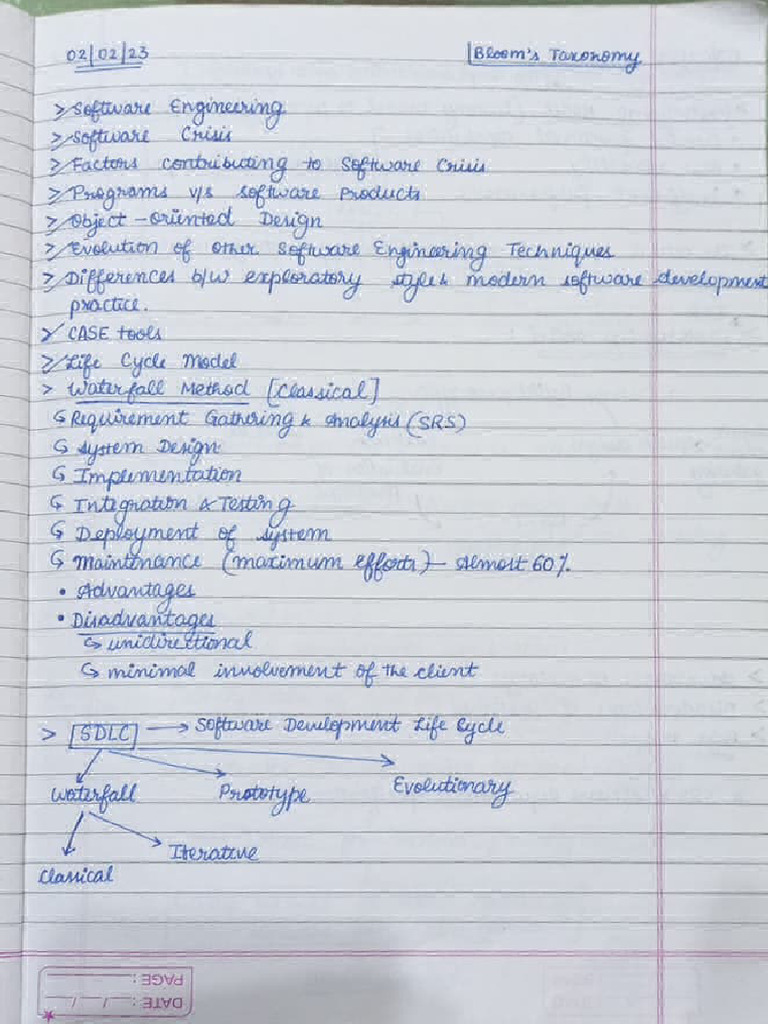 02/02/23
Bloom's Taxonomy
> Software Engineering
> Software Crisis
> Factors contributing to Software Crisis
> Programs v/s software products
> Object-oriented Design
> Evolution of other Software Engineering Techniques
> Differences b/w exploratory style & modern software development
practice.
> CASE tools
> Life Cycle Model
> Waterfall Method [Classical]
↳ Requirement Gathering & Analysis (SRS)
↳ System Design
↳ Implementation
↳ Integration & Testing
↳ Deployment of system
↳ Maintenance (maximum efforts) - Almost 60%
• Advantages
• Disadvantages
↳ unidirectional
↳ minimal involvement of the client
> SDLC → Software Development Life Cycle
Waterfall Prototype Evolutionary
Iterative
Classical
PAGE:
DATE: / /